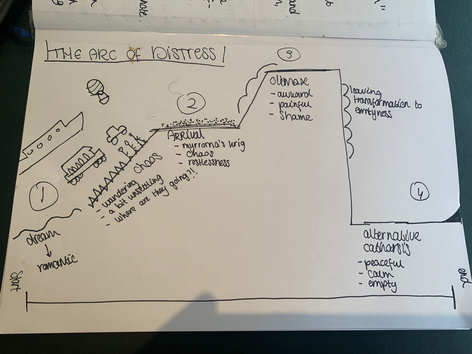 THE ARC OF DISTRESS!
1
dream
romantic
chaos
- wandering
- a bit unsettling
- where are they going?!
2
ARRIVAL
- chaos
- restlessness
3
- awkward
- painful
- shame
leaving
transformation to
emptyness
4
alternative
catharsis
- peaceful
- calm
- empty
Start
end